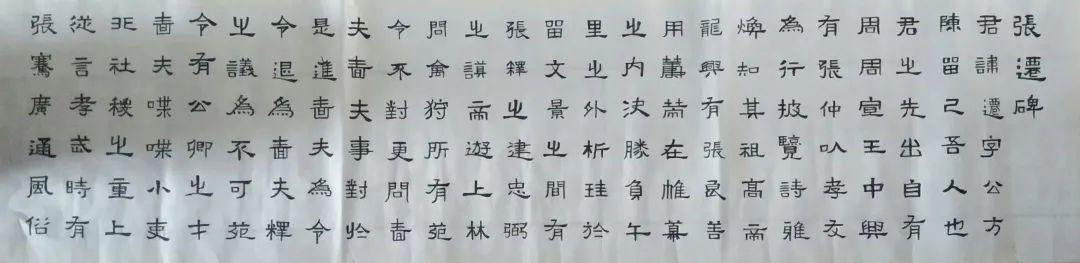 張遷碑
君諱遷字公方
陳留己吾人也
君之先出自有
周周宣王中興
有張仲以孝友
為行披覽詩雅
煥知其祖高帝
龍興有張良善
用籌策在帷幕
之内決勝負千
里之外析珪於
留文景之間有
張釋之建忠弼
之謨帝遊上林
問禽狩所有苑
令不對更問嗇
夫嗇夫事對於
是進嗇夫為令
令退為嗇夫釋
之議為不可苑
令有公卿之才
嗇夫喋喋小吏
非社稷之重上
從言孝武時有
張騫廣通風俗